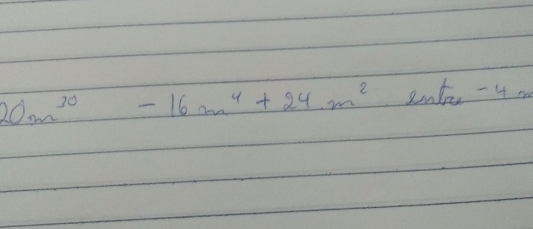 20m³⁰ - 16m⁴ + 24m² entre -4m